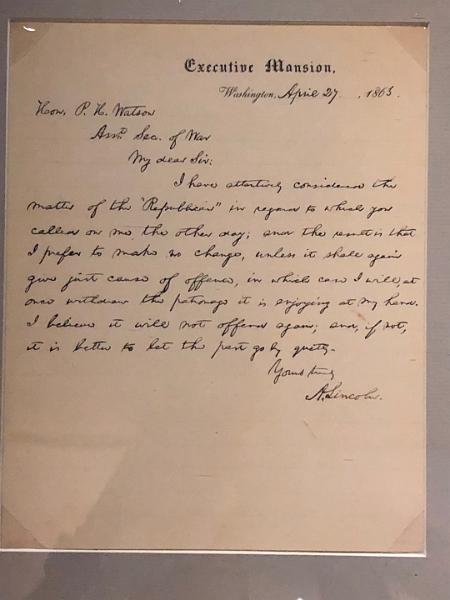 Executive Mansion,
Washington, April 27, 1863.
Hon. P. H. Watson
Asst. Sec. of War
My dear Sir:
I have attentively considered the
matter of the "Republican" in regard to which you
called on me the other day; and the result is that
I prefer to make no change, unless it shall again
give just cause of offence, in which case I will, at
once withdraw the patronage it is enjoying at my hand.
I believe it will not offend again; and, if not,
it is better to let the past go by quietly.
Yours truly
A. Lincoln.